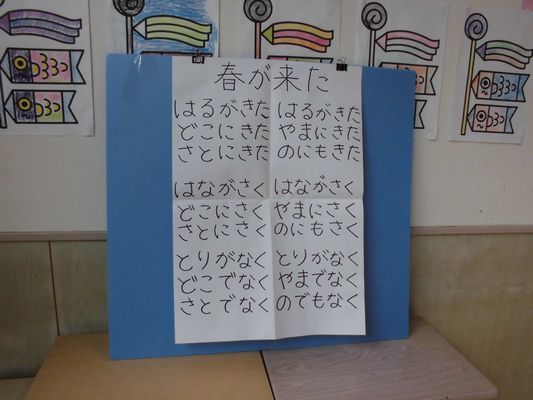 春が来た
はるがきた はるがきた
どこにきた やまにきた
さとにきた のにもきた
はながさく はながさく
どこにさく やまにさく
さとにさく のにもさく
とりがなく とりがなく
どこでなく やまでなく
さとでなく のでもなく